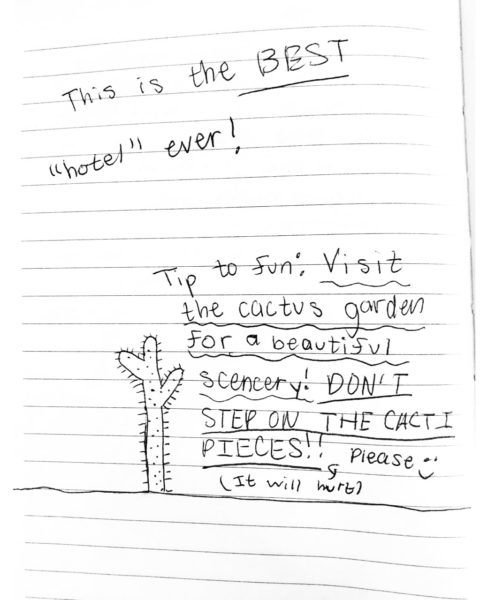 This is the BEST
"hotel" ever!
Tip to fun: Visit
the cactus garden
for a beautiful
scencery! DON'T
STEP ON THE CACTI
PIECES!! Please
(It will hurt)